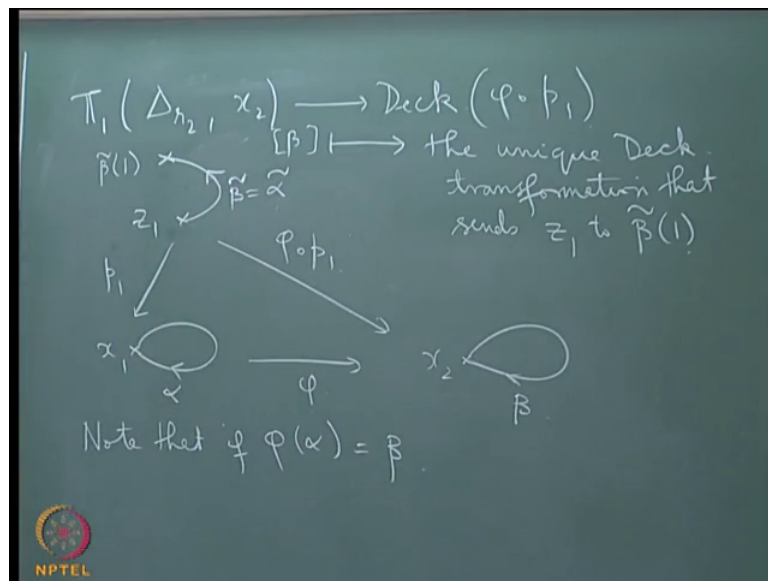 π₁ (Δ_{r₂}, x₂) ⟶ Deck (φ∘p₁)
[β] ⟼ the unique Deck
transformation that
sends z₁ to β̃(1)
β̃(1)
β̃ = α̃
z₁
p₁
φ∘p₁
x₁
α
φ
x₂
β
Note that if φ(α) = β
NPTEL